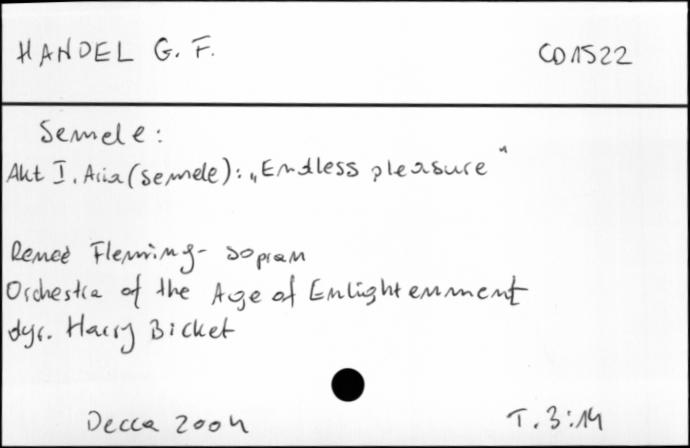 HANDEL G. F.
CD 1522
Semele:
Akt I. Aria (Semele): „Endless pleasure"
Reneé Fleming - sopran
Orchestra of the Age of Enlightenment
dyr. Harry Bicket
Decca 2004
T. 3:14